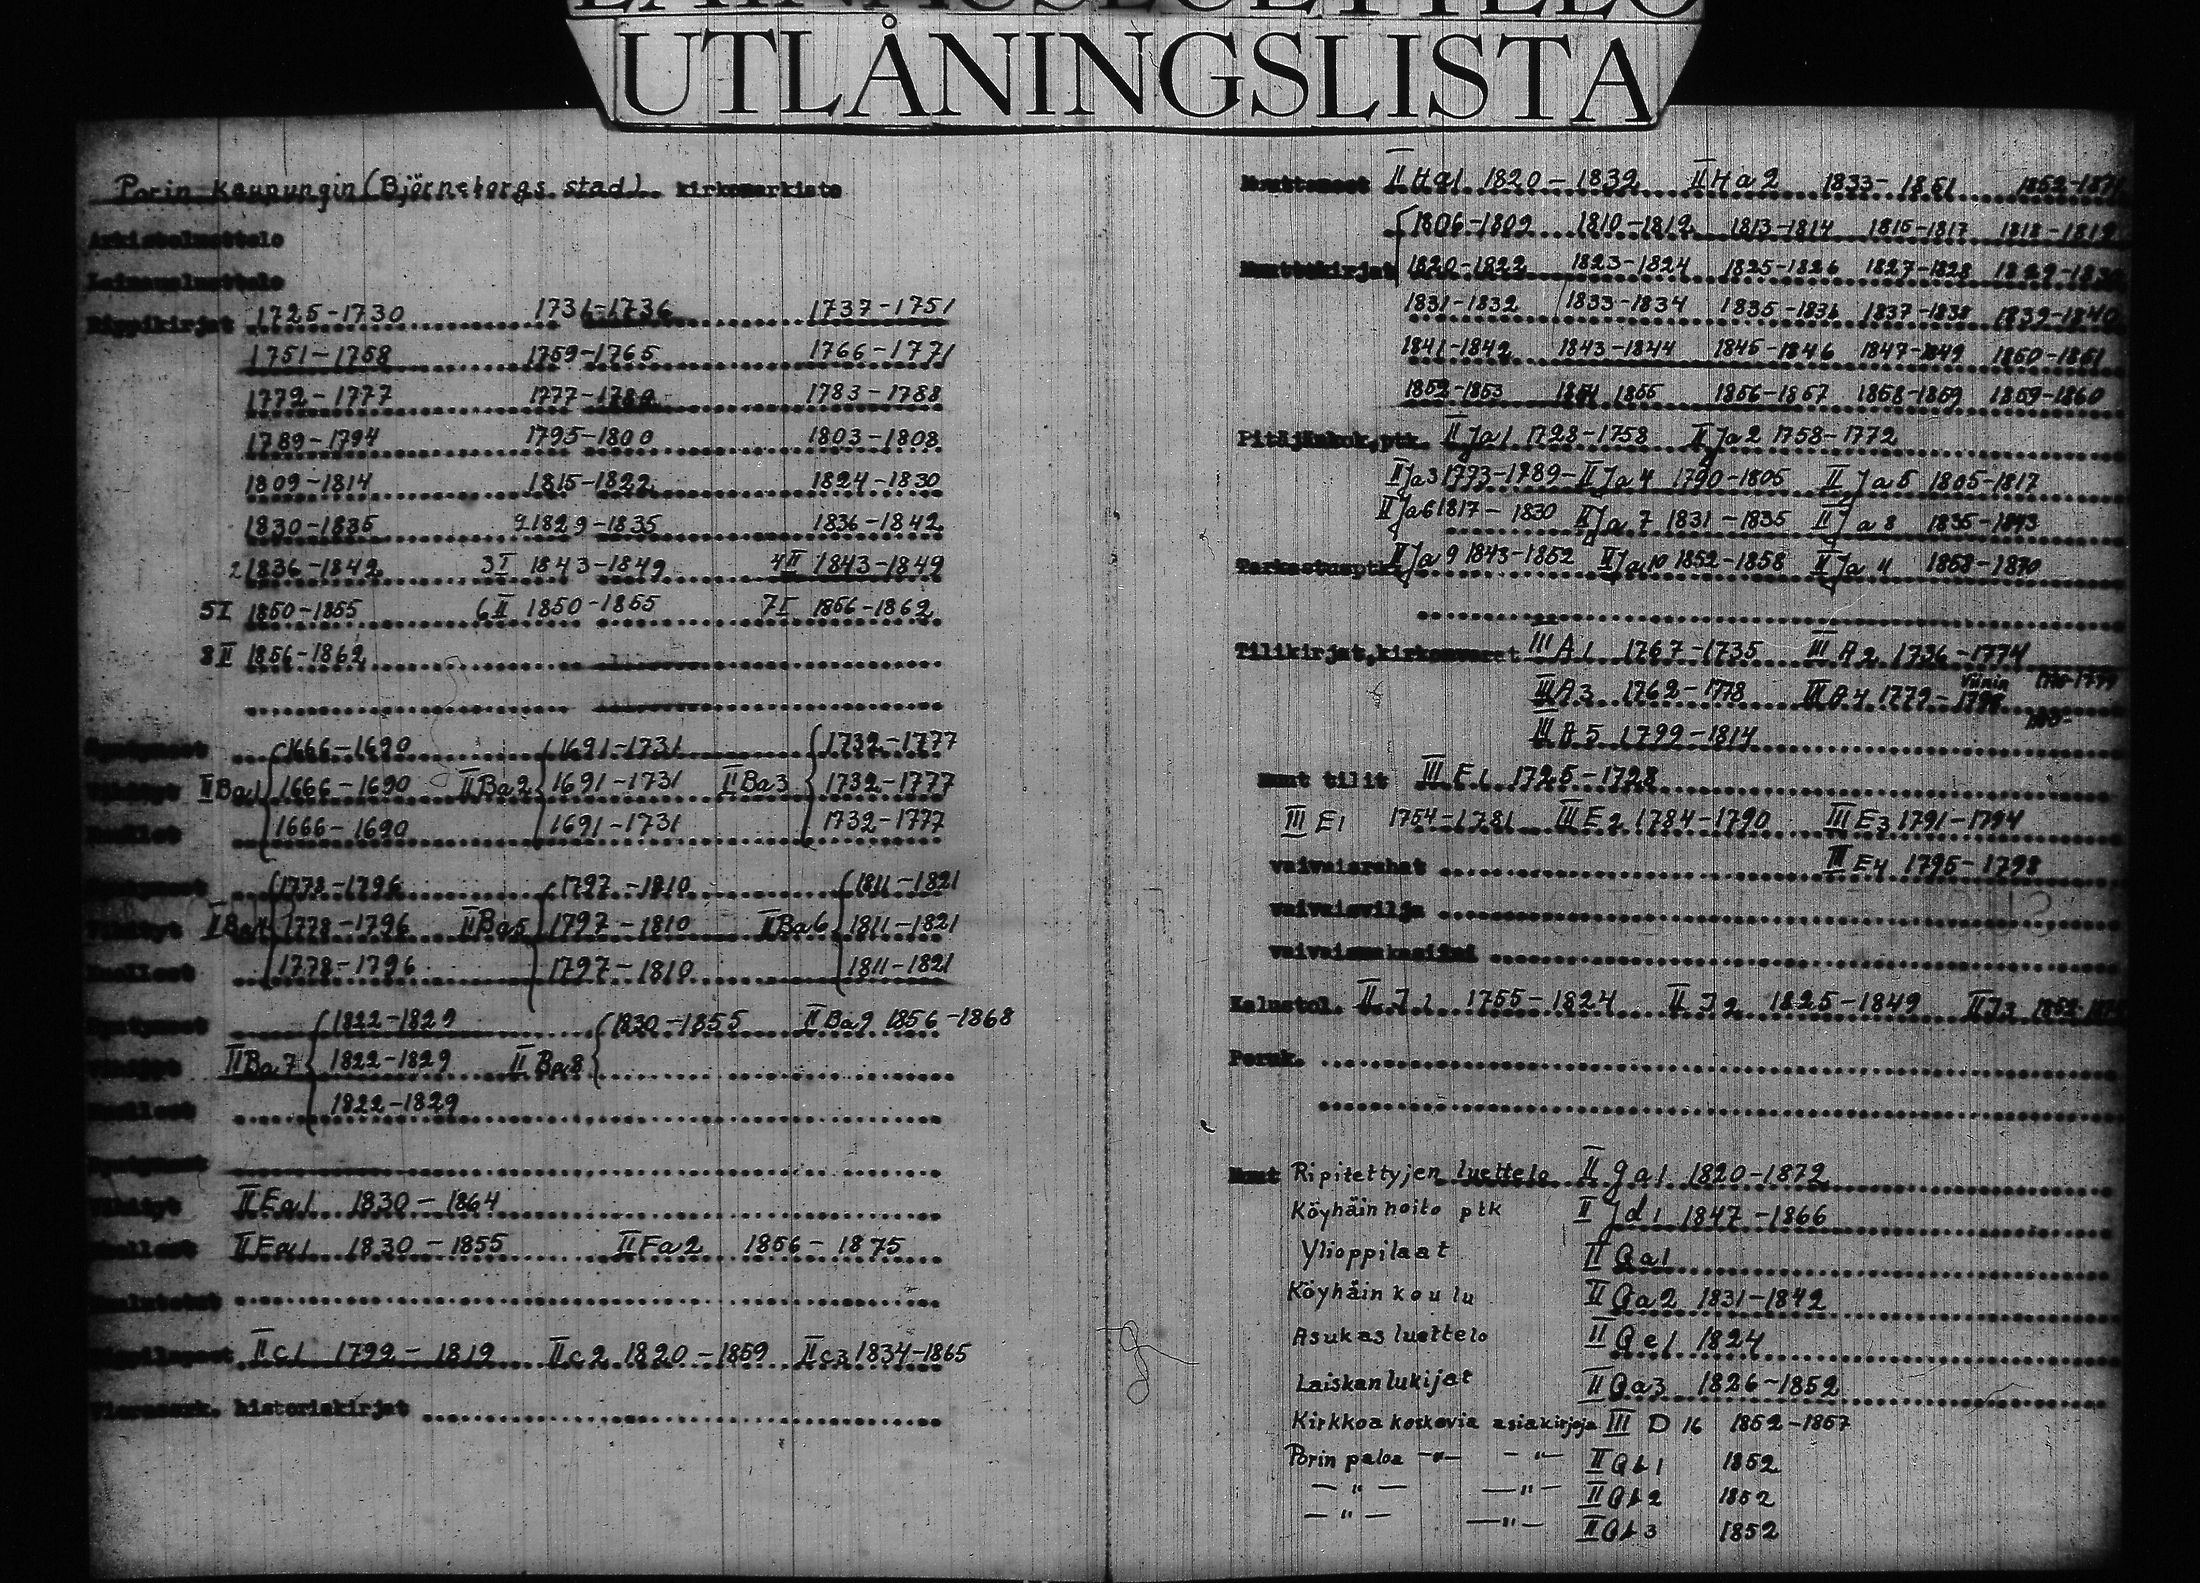 UTLÅNINGSLISTA
Porin kaupungin (Björneborgs stad) kirkonarkisto
Arkistoluettelo
Lainausluettelo
Rippikirjat 1725-1730 1731-1736 1737-1751
1751-1758 1759-1765 1766-1771
1772-1777 1777-1782 1783-1788
1789-1794 1795-1800 1803-1808
1809-1814 1815-1822 1824-1830
1830-1835 1829-1835 1836-1842
2 1836-1842 3 I 1843-1849 4 II 1843-1849
5 I 1850-1855 6 II 1850-1855 7 I 1856-1862
8 II 1856-1862
Syntyneet 1666-1690 1691-1731 1732-1777
Vihityt II Ba1 1666-1690 II Ba2 1691-1731 II Ba3 1732-1777
Kuolleet 1666-1690 1691-1731 1732-1777
Syntyneet 1778-1796 1797-1810 1811-1821
Vihityt II Ba4 1778-1796 II Ba5 1797-1810 II Ba6 1811-1821
Kuolleet 1778-1796 1797-1810 1811-1821
Syntyneet 1822-1829 1830-1855 II Ba9 1856-1868
Vihityt II Ba7 1822-1829 II Ba8
Kuolleet 1822-1829
Syntyneet
Vihityt II Ea1 1830-1864
Kuolleet II Fa1 1830-1855 II Fa2 1856-1875
Kuulutetut
Rippilapset II c1 1792-1819 II c2 1820-1859 II c3 1834-1865
Vierassrk. historiakirjat
Muuttaneet II Ha1 1820-1832 II Ha2 1833-1851 1852-1871
1806-1809 1810-1812 1813-1814 1815-1817 1818-1819
Muuttokirjat 1820-1822 1823-1824 1825-1826 1827-1828 1829-1830
1831-1832 1833-1834 1835-1836 1837-1838 1839-1840
1841-1842 1843-1844 1845-1846 1847-1849 1850-1851
1852-1853 1854 1855 1856-1857 1858-1859 1859-1860
Pitäjänkok.ptk. II Ja1 1728-1758 II Ja2 1758-1772
II Ja3 1773-1789- II Ja4 1790-1805 II Ja5 1805-1817
II Ja6 1817-1830 II Ja7 1831-1835 II Ja8 1835-1843
Tarkastusptk. II Ja9 1843-1852 II Ja10 1852-1858 II Ja 11 1858-1870
Tilikirjat, kirkonvarat III A1 1767-1735 III A2 1736-1774
III A3 1762-1778 III A4 1779-1798
III A5 1799-1814
Muut tilit III E1 1725-1728
III E1 1754-1781 III E2 1784-1790 III E3 1791-1794
vaivaisrahat III E4 1795-1798
vaivaisvilja
vaivaismakasiini
Kalustol. II J1 1755-1824 II J2 1825-1849 II J3
Peruk.
Muut Ripitettyjen luettelo II ga1 1820-1872
Köyhäinhoito ptk II Jd1 1847-1866
Ylioppilaat II Ga1
Köyhäin koulu II Ga2 1831-1842
Asukas luettelo II Ge1 1824
Laiskanlukijat II Ga3 1826-1852
Kirkkoa koskevia asiakirjoja III D 16 1852-1857
Porin paloa -"- -"- II Gb1 1852
-"- -"- II Gb2 1852
-"- -"- II Gb3 1852